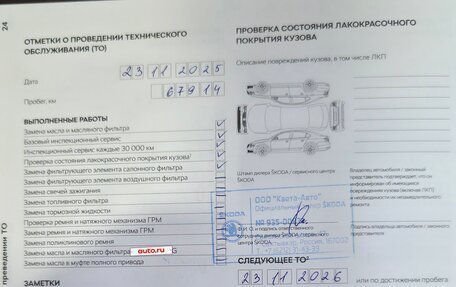 24
ОТМЕТКИ О ПРОВЕДЕНИИ ТЕХНИЧЕСКОГО
ОБСЛУЖИВАНИЯ (ТО)
Дата
23 11 2025
Пробег, км
67914
ВЫПОЛНЕННЫЕ РАБОТЫ
Замена масла и масляного фильтра
Базовый инспекционный сервис
Инспекционный сервис каждые 30 000 км
Проверка состояния лакокрасочного покрытия кузова
Замена фильтрующего элемента салонного фильтра
Замена фильтрующего элемента воздушного фильтра
Замена свечей зажигания
Замена топливного фильтра
Замена тормозной жидкости
Проверка ремня и натяжного механизма ГРМ
Замена ремня и натяжного механизма ГРМ
Замена поликлинового ремня
Замена масла и масляного фильтра
auto.ru
Замена масла в муфте полного привода
ЗАМЕТКИ
ПРОВЕРКА СОСТОЯНИЯ ЛАКОКРАСОЧНОГО
ПОКРЫТИЯ КУЗОВА
Описание повреждений кузова, в том числе ЛКП
Штамп дилера ŠKODA / сервисного центра
ŠKODA
Владелец автомобиля / законный
представитель подтверждает, что он
информирован об имеющихся
повреждениях кузова (включая ЛКП)
ООО "Квета-Авто"
Официальный дилер ŠKODA
№ 935-00
Ф.И.О. и подпись ответственного
сотрудника дилера ŠKODA / сервисного
центра ŠKODA
Сыктывкар, Россия, 167002
Т.+7(8212)31-43-39
Владелец автомобиля / законный
представитель (подпись)
СЛЕДУЮЩЕЕ ТО
23 11 2026
или по достижении пробега